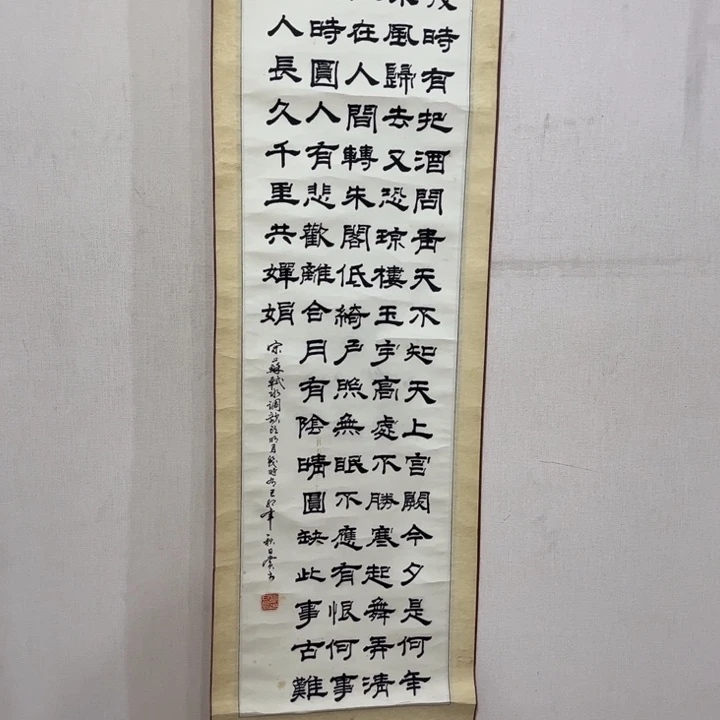 時有把酒問青天不知天上宫闕今夕是何年
風歸去又恐琼樓玉宇高處不勝寒起舞弄清
在人間轉朱閣低綺户照無眠不應有恨何事
時圓人有悲歡離合月有陰晴圓缺此事古難
人長久千里共嬋娟
宋蘇軾水调歌頭明月幾時有 年秋日